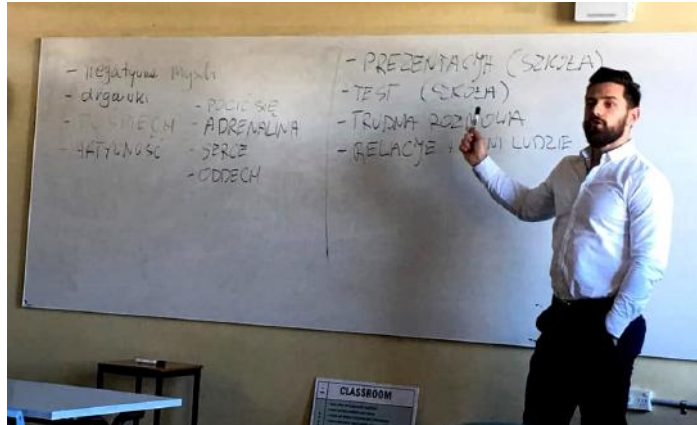 - negatywne myśli
- drgawki
- POCIĆ SIĘ
- ADRENALINA
- AKTYWNOŚĆ
- SERCE
- ODDECH
- PREZENTACYA (SZKOŁA)
- TEST (SZKOŁA)
- TRUDNA ROZMOWA
- RELACJE INNI LUDZIE
CLASSROOM